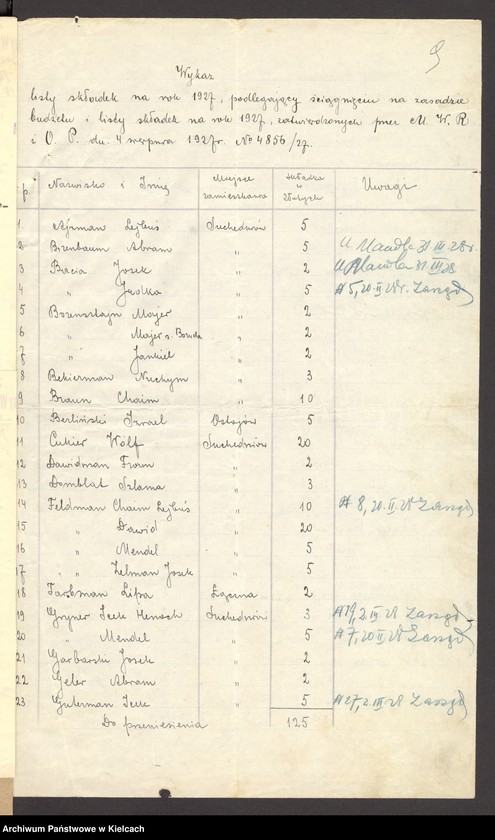 9
Wykaz
listy składek na rok 1927, podlegający ściągnięciu na zasadzie
budżetu i listy składek na rok 1927, zatwierdzonych przez M. W. R
i O. P. dn. 4 sierpnia 1927 r. № 4856/27.
p. Nazwisko i Imię Miejsce zamieszkania Składka w złotych Uwagi
1 Ajzman Lejbuś Suchedniów 5
2 Birenbaum Abram " 5 31 III 28 r.
3 Bracia Josek " 2 31 III 28
4 " Judka " 5 # 5, 20 II 28 r. Zarząd
5 Borensztajn Majer " 2
6 " Majer s. " 2
7 " Jankiel " 2
8 Bekierman Nuchym " 3
9 Braun Chaim " 10
10 Berliński Izrael Ostojów 5
11 Cukier Wolf Suchedniów 20
12 Dawidman From " 2
13 Domblat Szlama " 3
14 Feldman Chaim Lejbuś " 10 # 8, 20 II 28 Zarząd
15 " Dawid " 20
16 " Mendel " 5
17 " Zelman Josek " 5
18 Farbman Liba Łączna 2
19 Gryner Icek Henoch Suchedniów 3 # 19, 2 III 28 Zarząd
20 " Mendel " 5 # 7, 20 II 28 Zarząd
21 Garbarski Josek " 2
22 Geler Abram " 2
23 Guterman Icek " 5 # 27, 2 III 28 Zarząd
Do przeniesienia 125
Archiwum Państwowe w Kielcach